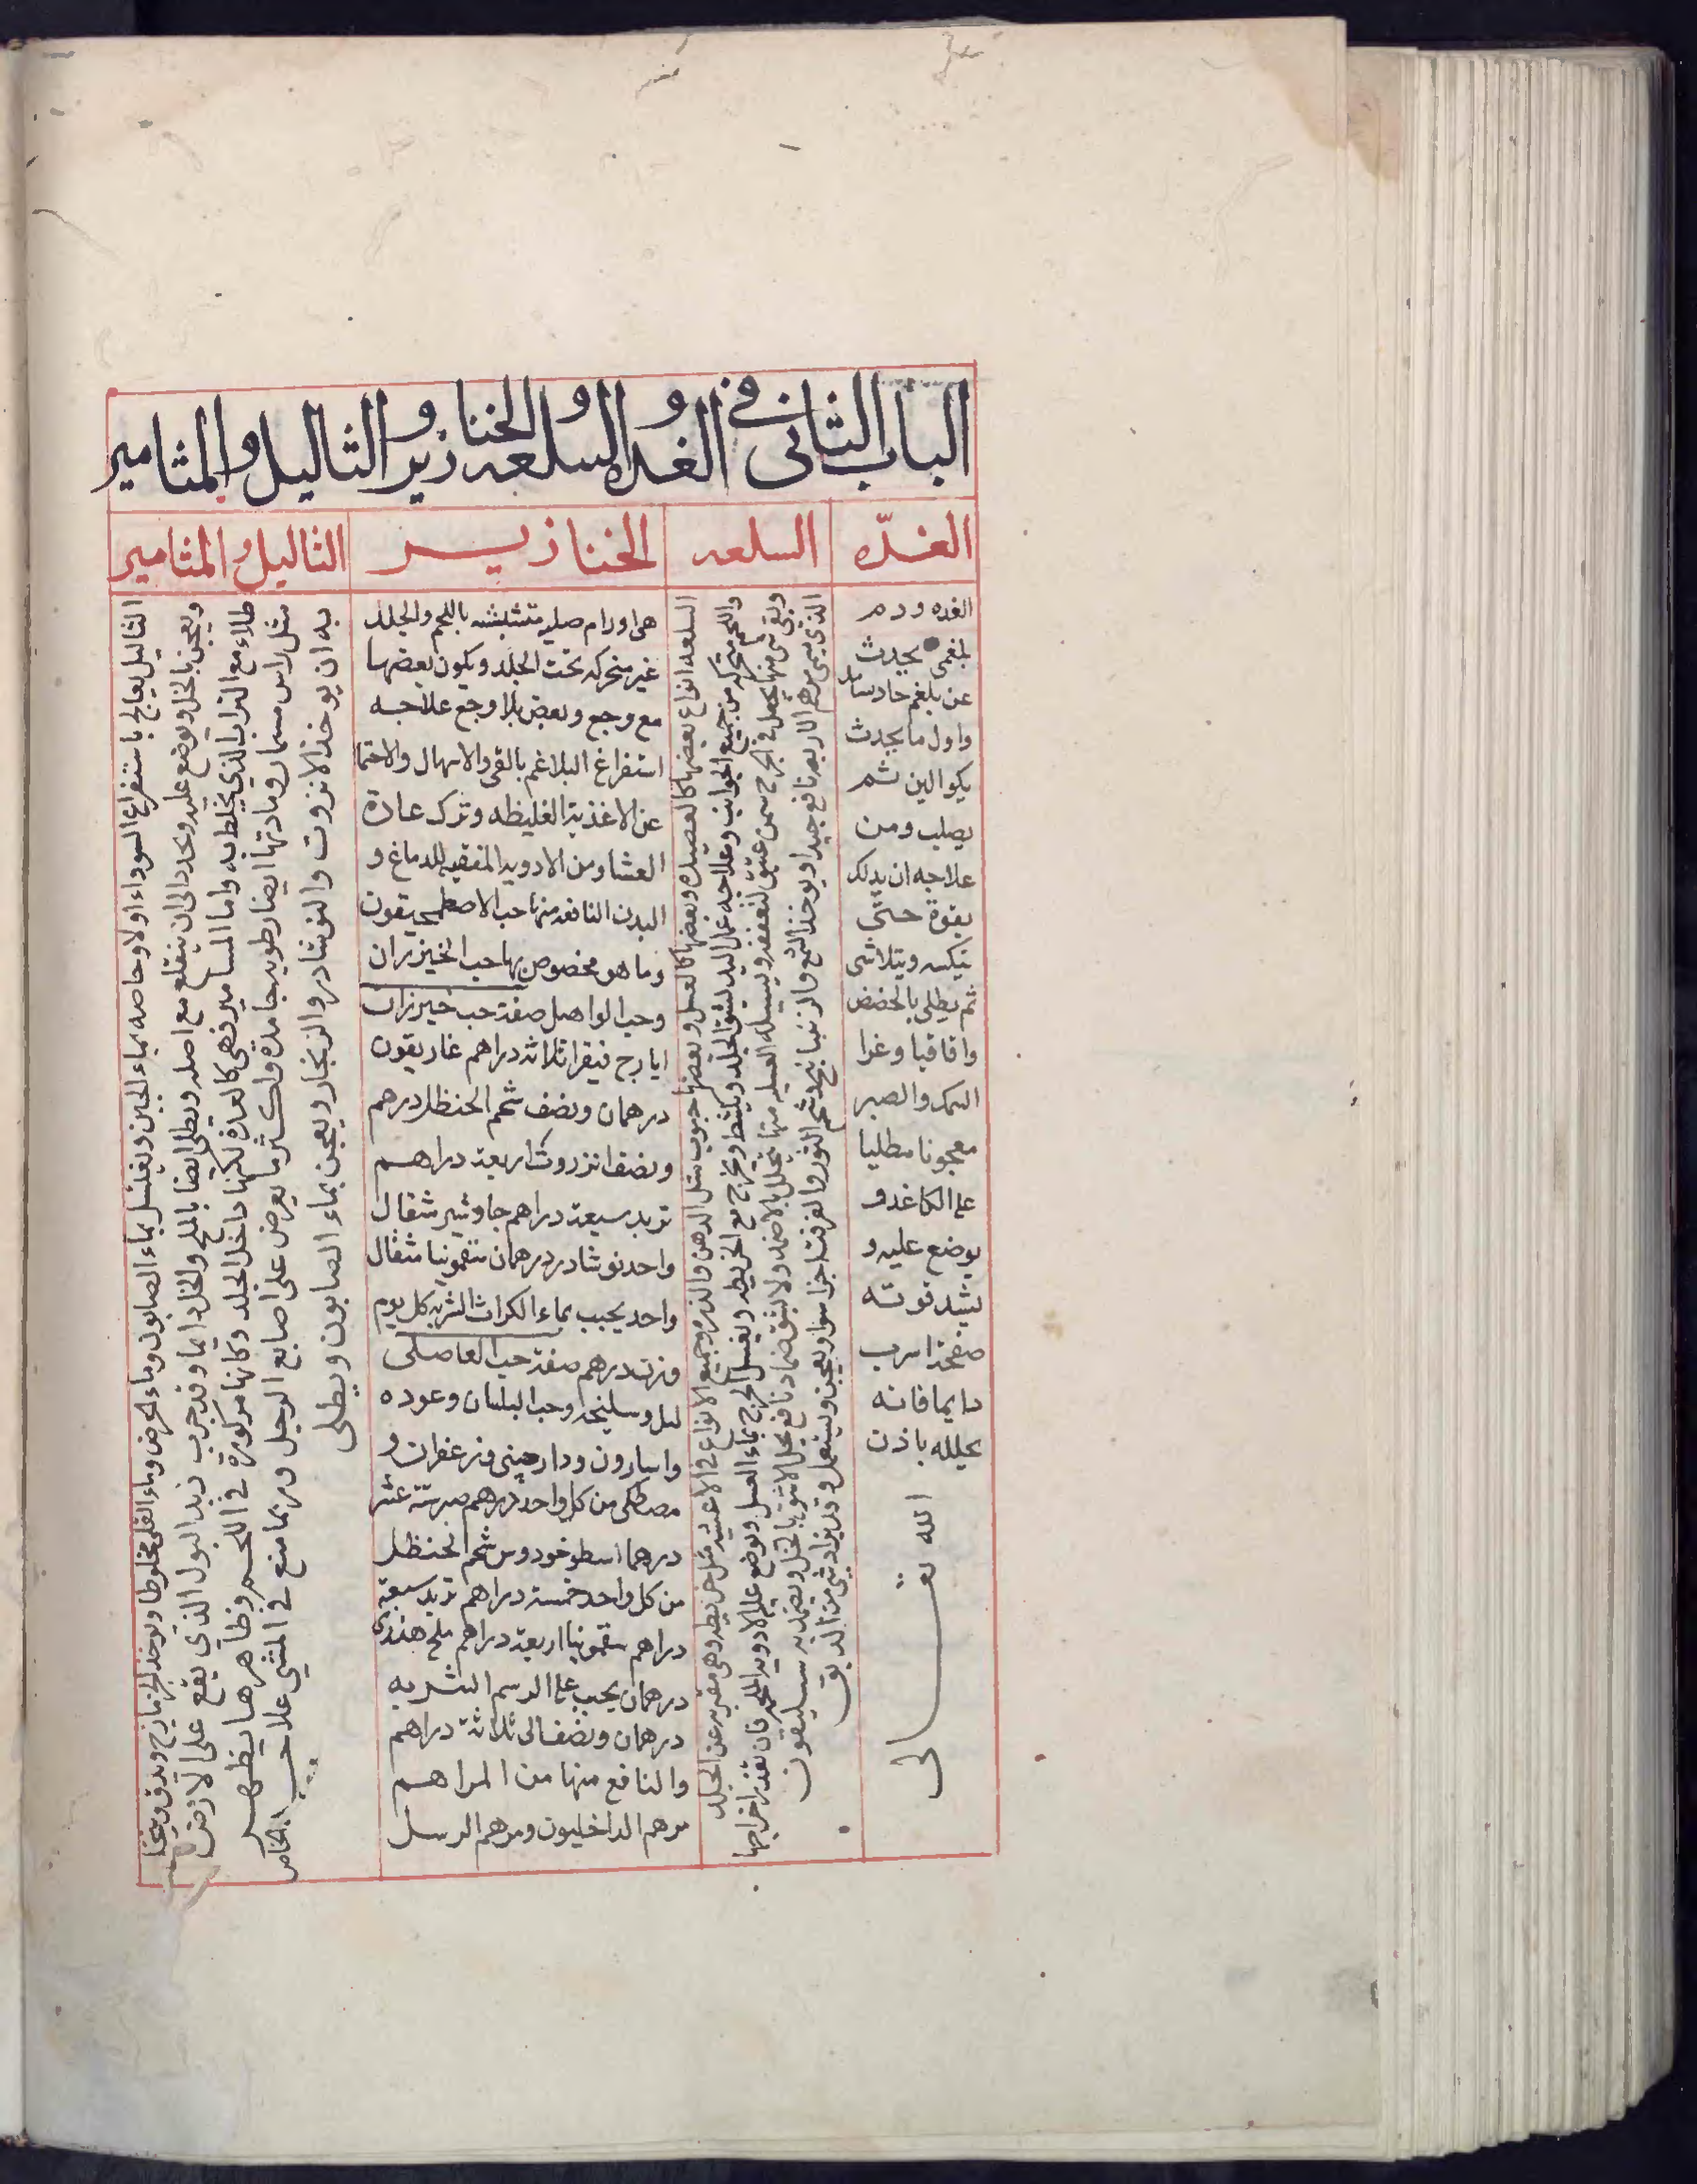 الباب الثاني في الغده والسلعه والخنازير والثاليل والمثامير
الغدّه
السلعه
الخنازير
الثاليل والمثامير
الغده ورم
بلغمى يحدث
عن بلغم حاد
واول ما يحدث
يكو الين ثم
يصلب ومن
علاجه ان يدلك
بقوة حتى
ويتلاشى
ثم يطلى بالحضض
واقاقيا وغرا
السمك والصبر
معجونا مطليا
على الكاغد و
يوضع عليه و
يشد فوقه
صفحة اسرب
دايما فانه
يحلله باذن
الله تعالى
السلعه انواع بعضها كالعصيده وبعضها كالعسل وبعضها حبوب مثل الدهن وجميع الانواع فى الاغشيه مثل خريطه وهى متبريه عن الجلد
واللحم متحركه من جميع الجوانب وعلاجه عمال اليد ليشق الجلد ويكشط ويخرج مع الخريطه ويغسل الجرح بماء العسل ويوضع عليه الادويه الملحمه فان تعذر اخراجها
وبقى شى منها يجعل فى الجرح سمن عتيق ليتعفن العسليه منها يتحلل بالاضمده ولا يشق ضماد نافع يحل الاشق بالخل ويضمد به
الذى يسمى مرهم الاربعه نافع جيدا ويوخذ الشمع والراتينج وشحم الثور والزفت اجزا سوا ويعجن ويستعمل وقد يزاد شى من الدبق
هى اورام صلبه متشبثه باللحم والجلد
غير متحركه تحت الجلد ويكون بعضها
مع وجع وبعض بلا وجع علاجه
استفراغ البلاغم بالقى والاسهال والاحتما
عن الاغذية الغليظه وترك عادة
العشا ومن الادويه المنقيه للدماغ و
البدن النافعه منها حب الاصطمحيقون
وما هو مخصوص بها حب الخيزران
وحب الواصل صفة حب خيزران
ايارج فيقرا ثلاثه دراهم غاريقون
درهمان ونصف شحم الحنظل درهم
ونصف انزروت اربعة دراهم
تربد سبعة دراهم جاوشير مثقال
واحد نوشادر درهمان سقمونيا مثقال
واحد يحبب بماء الكراث الشربه كل يوم
وزن درهم صفة حب
وسليخه وحب البلسان وعوده
واسارون ودارصينى وزعفران و
مصطكى من كل واحد درهم صبر ستة عشر
درهما اسطوخودوس شحم الحنظل
من كل واحد خمسة دراهم تربد سبعة
دراهم سقمونيا اربعة دراهم ملح هندى
درهمان يحبب على الرسم الشربه
درهمان ونصف الى ثلاثة دراهم
والنافع منها من المراهم
مرهم الداخليون ومرهم الرسل
الثاليل يعالج باستفراغ السوداء اولا وخاصه بماء الجبن ويغسل بماء الصابون وماء الحرض وماء القلى مخلوطا ويوخذ ويدق
ويعجن بالخل ويوضع عليه ويجدد الى ان ينقلع مع اصله ويطلى ايضا بالملح والخل دايما وقد جرب زبد البول الذي يقع على الارض
طلاء مع التراب الذي يخلط به واما المسامير فهى كالعده لكنها داخل الجلد وكانها مركوزة في اللحم وظاهرها يظهر
مثل راس مسمار ومادتها ايضا رطوبه جامده واكثر ما يعرض على اصابع الرجل وربما منع في المشي علاجه الخاص
به ان يوخذ الانزروت والنوشادر والزنجار ويعجن بماء الصابون ويطلى